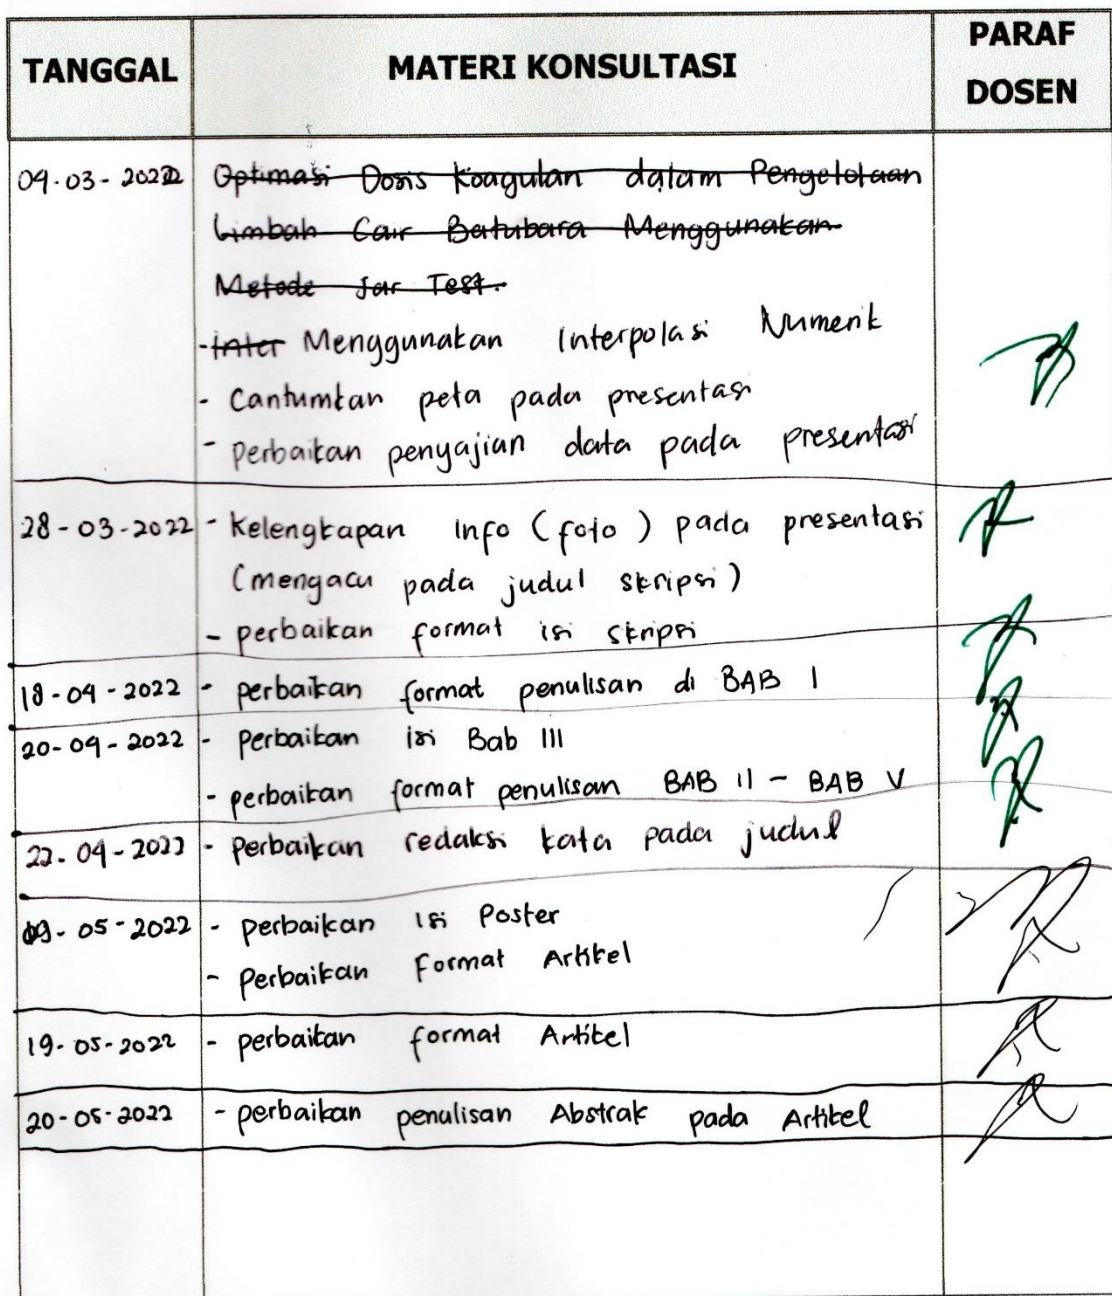 TANGGAL MATERI KONSULTASI PARAF DOSEN
09-03-2022 Optimasi Dosis Koagulan dalam Pengelolaan
Limbah Cair Batubara Menggunakan
Metode Jar Test.
- Inter Menggunakan Interpolasi Numerik
- Cantumkan peta pada presentasi
- Perbaikan penyajian data pada presentasi
28-03-2022 - Kelengkapan Info (foto) pada presentasi
(mengacu pada judul skripsi)
- perbaikan format isi skripsi
18-04-2022 - perbaikan format penulisan di BAB I
20-04-2022 - perbaikan isi Bab III
- perbaikan format penulisan BAB II - BAB V
22-04-2022 - perbaikan redaksi kata pada judul
09-05-2022 - perbaikan isi Poster
- Perbaikan Format Artikel
19-05-2022 - perbaikan format Artikel
20-05-2022 - perbaikan penulisan Abstrak pada Artikel